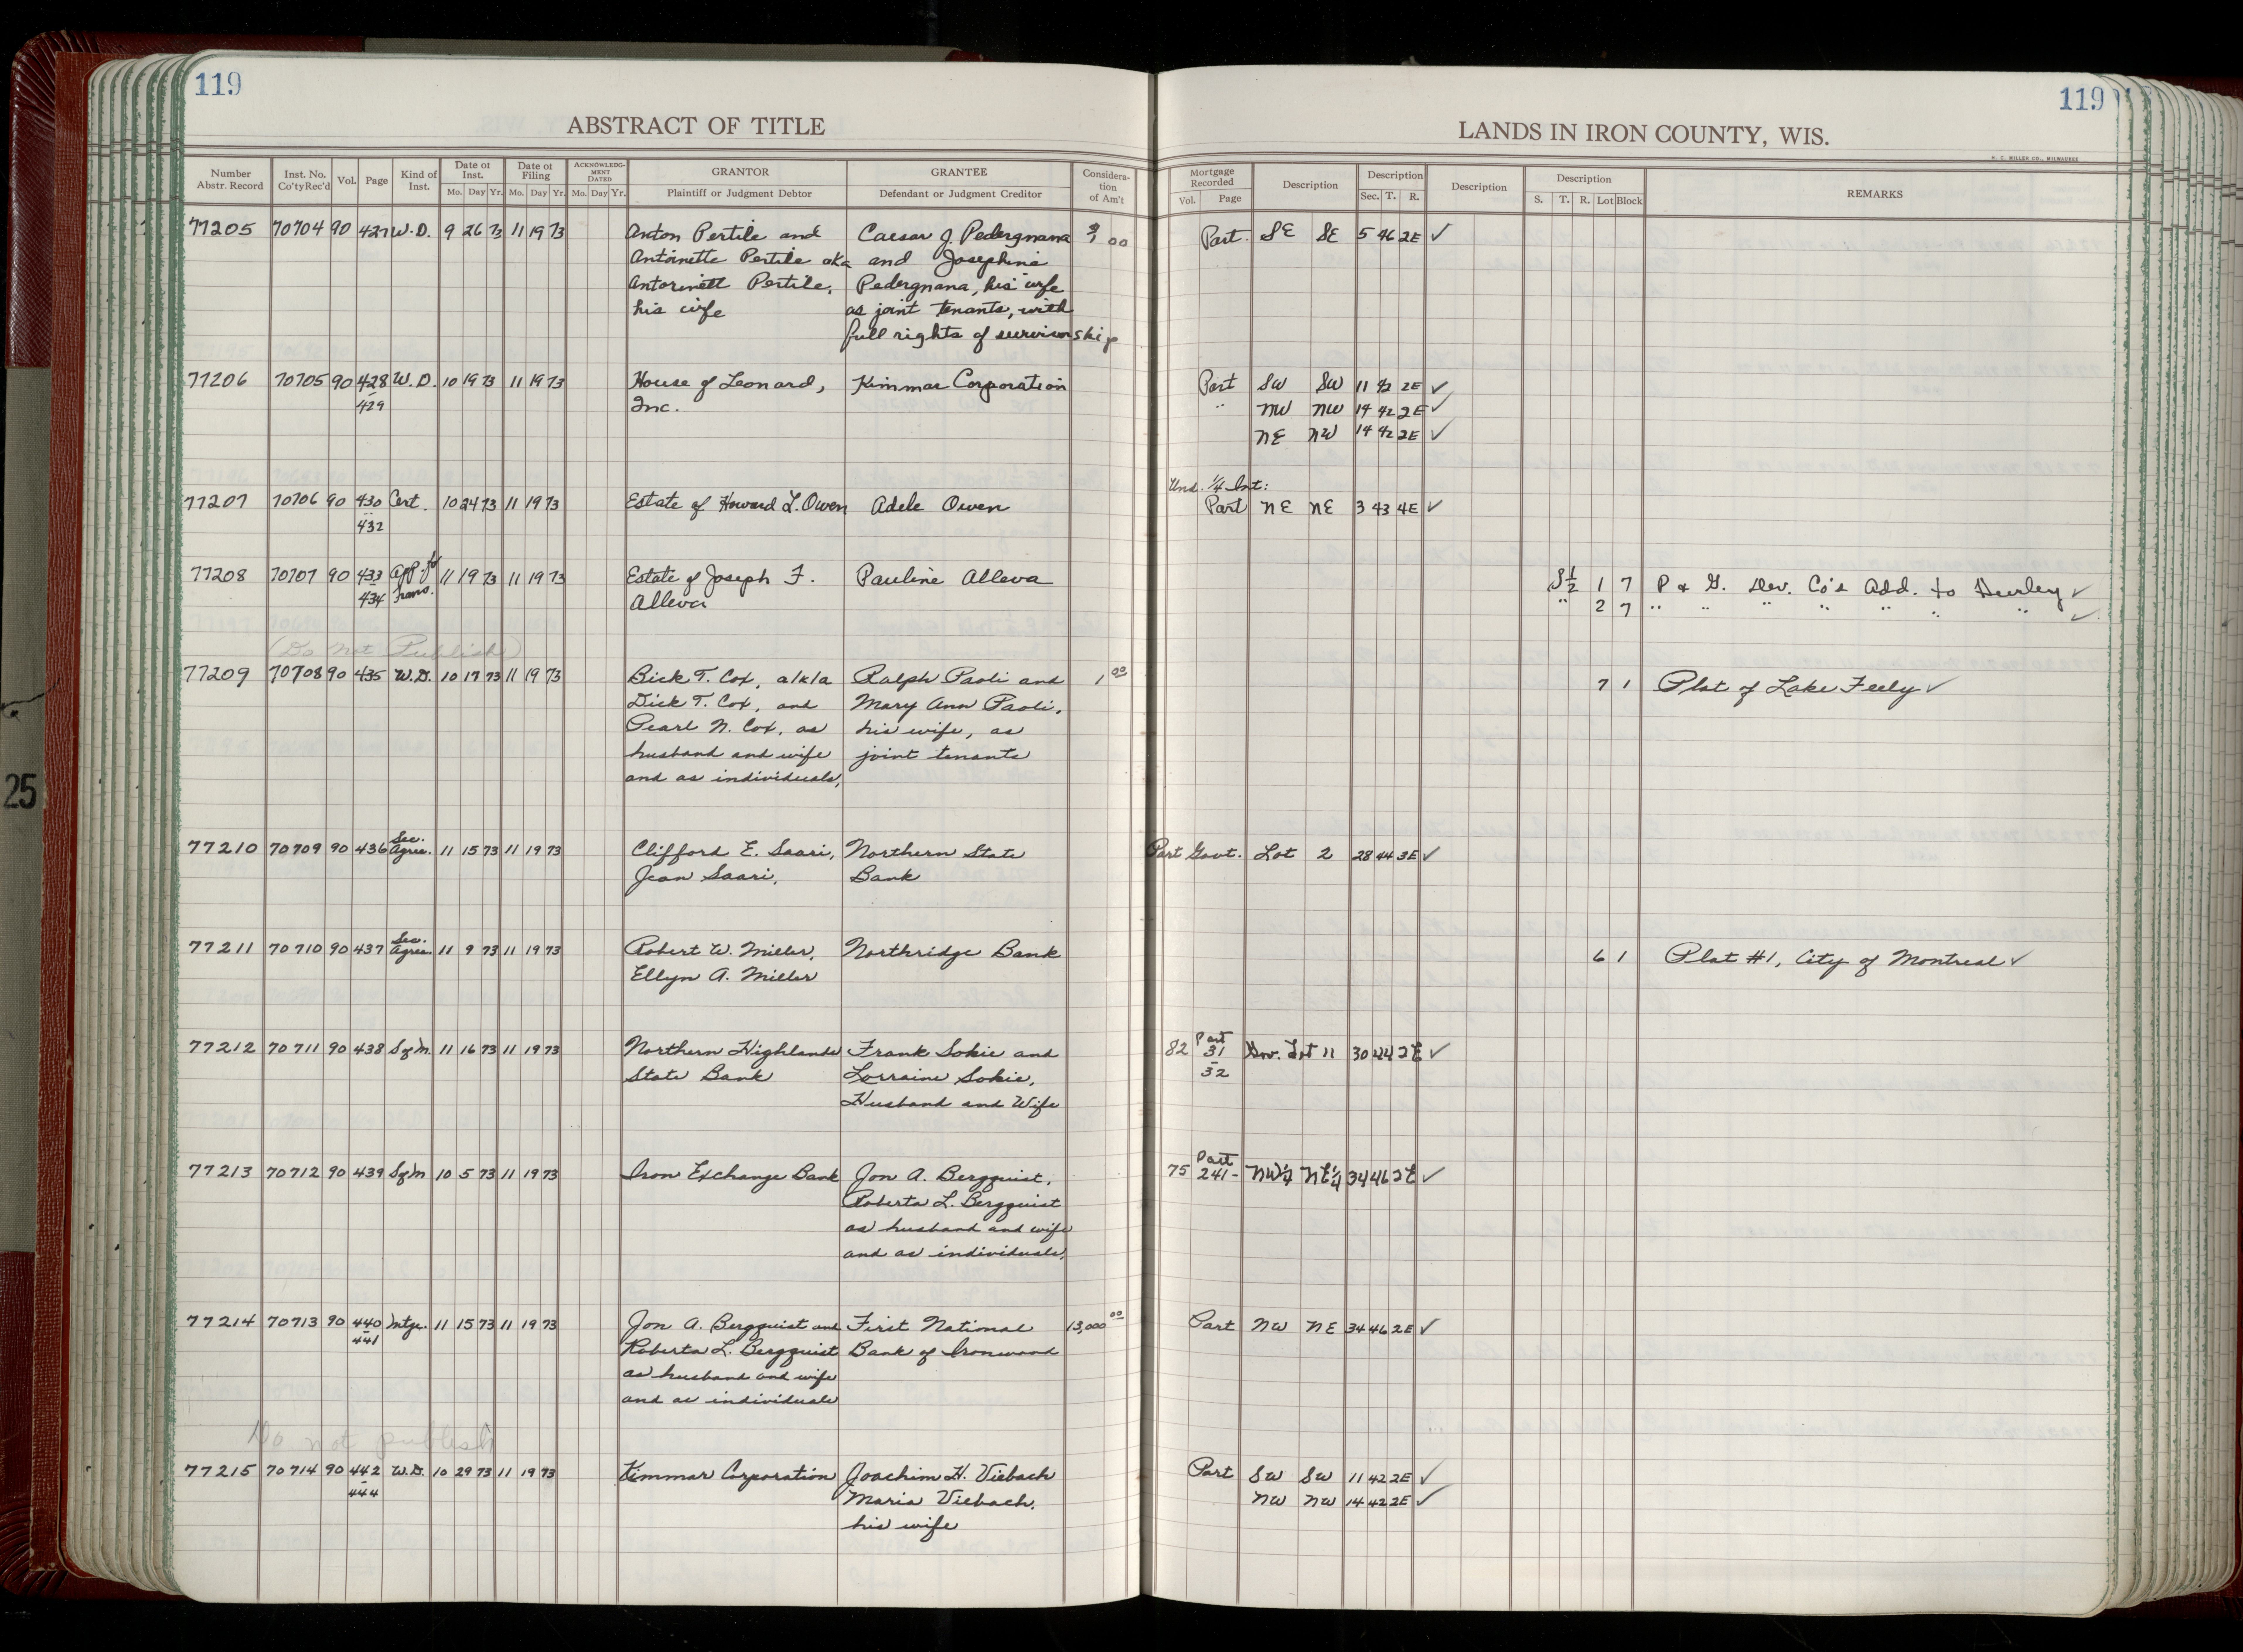 119
119
ABSTRACT OF TITLE
LANDS IN IRON COUNTY, WIS.
H. C. MILLER CO., MILWAUKEE
Number Abstr. Record
Inst. No. Co'ty Rec'd
Vol.
Page
Kind of Inst.
Date of Inst.
Mo. Day Yr.
Date of Filing
Mo. Day Yr.
ACKNOWLEDGMENT DATED
Mo. Day Yr.
GRANTOR
Plaintiff or Judgment Debtor
GRANTEE
Defendant or Judgment Creditor
Consideration of Am't
Mortgage Recorded
Vol. Page
Description
Description
Sec. T. R.
Description
Description
S. T. R. Lot Block
REMARKS
77205 70704 90 427 W.D. 9 26 73 11 19 73 Anton Pertile and Caesar J. Pedergnana 00 Part SE SE 5 46 2E ✓
Antoinette Pertile aka and Josephine
Antorinett Pertile, Pedergnana, his wife
his wife as joint tenants, with
full rights of survivorship
77206 70705 90 428 W.D. 10 19 73 11 19 73 House of Leonard, Kimmar Corporation Part SW SW 11 42 2E ✓
429 Inc. " NW NW 14 42 2E ✓
NE NW 14 42 2E ✓
Und. 1/4 Int:
77207 70706 90 430 Cert. 10 24 73 11 19 73 Estate of Howard L. Owen Adele Owen Part NE NE 3 43 4E ✓
432
77208 70707 90 433 App. for 11 19 73 11 19 73 Estate of Joseph F. Pauline Alleva S 1/2 1 7 P & G. Dev. Co's Add. to Hurley ✓
434 Trans. Alleva " 2 7 " " " " " " ✓
(Do Not Publish)
77209 70708 90 435 W.D. 10 17 73 11 19 73 Bick T. Cox, a/k/a Ralph Paoli and 1 00 7 1 Plat of Lake Feely ✓
Dick T. Cox, and Mary Ann Paoli,
Pearl N. Cox, as his wife, as
husband and wife joint tenants
and as individuals,
77210 70709 90 436 Sec. Agree. 11 15 73 11 19 73 Clifford E. Saari, Northern State Part Govt. Lot 2 28 44 3E ✓
Jean Saari, Bank
77211 70710 90 437 Sec. Agree. 11 9 73 11 19 73 Robert W. Miller, Northridge Bank 6 1 Plat #1, City of Montreal ✓
Ellyn A. Miller
Part
77212 70711 90 438 SqM 11 16 73 11 19 73 Northern Highlands Frank Sokie and 82 31 Gov. Lot 11 30 44 2E ✓
State Bank Lorraine Sokie, - 32
Husband and Wife
Part
77213 70712 90 439 SqM 10 5 73 11 19 73 Iron Exchange Bank Jon A. Bergquist, 75 241- NW1/4 NE1/4 34 46 2E ✓
Roberta L. Bergquist
as husband and wife
and as individuals,
77214 70713 90 440 Mtge. 11 15 73 11 19 73 Jon A. Bergquist and First National 13,000 00 Part NW NE 34 46 2E ✓
441 Roberta L. Bergquist Bank of Ironwood
as husband and wife
and as individuals
Do not publish
77215 70714 90 442 W.D. 10 29 73 11 19 73 Kimmar Corporation Joachim H. Viebach Part SW SW 11 42 2E ✓
444 Maria Viebach, NW NW 14 42 2E ✓
his wife
25